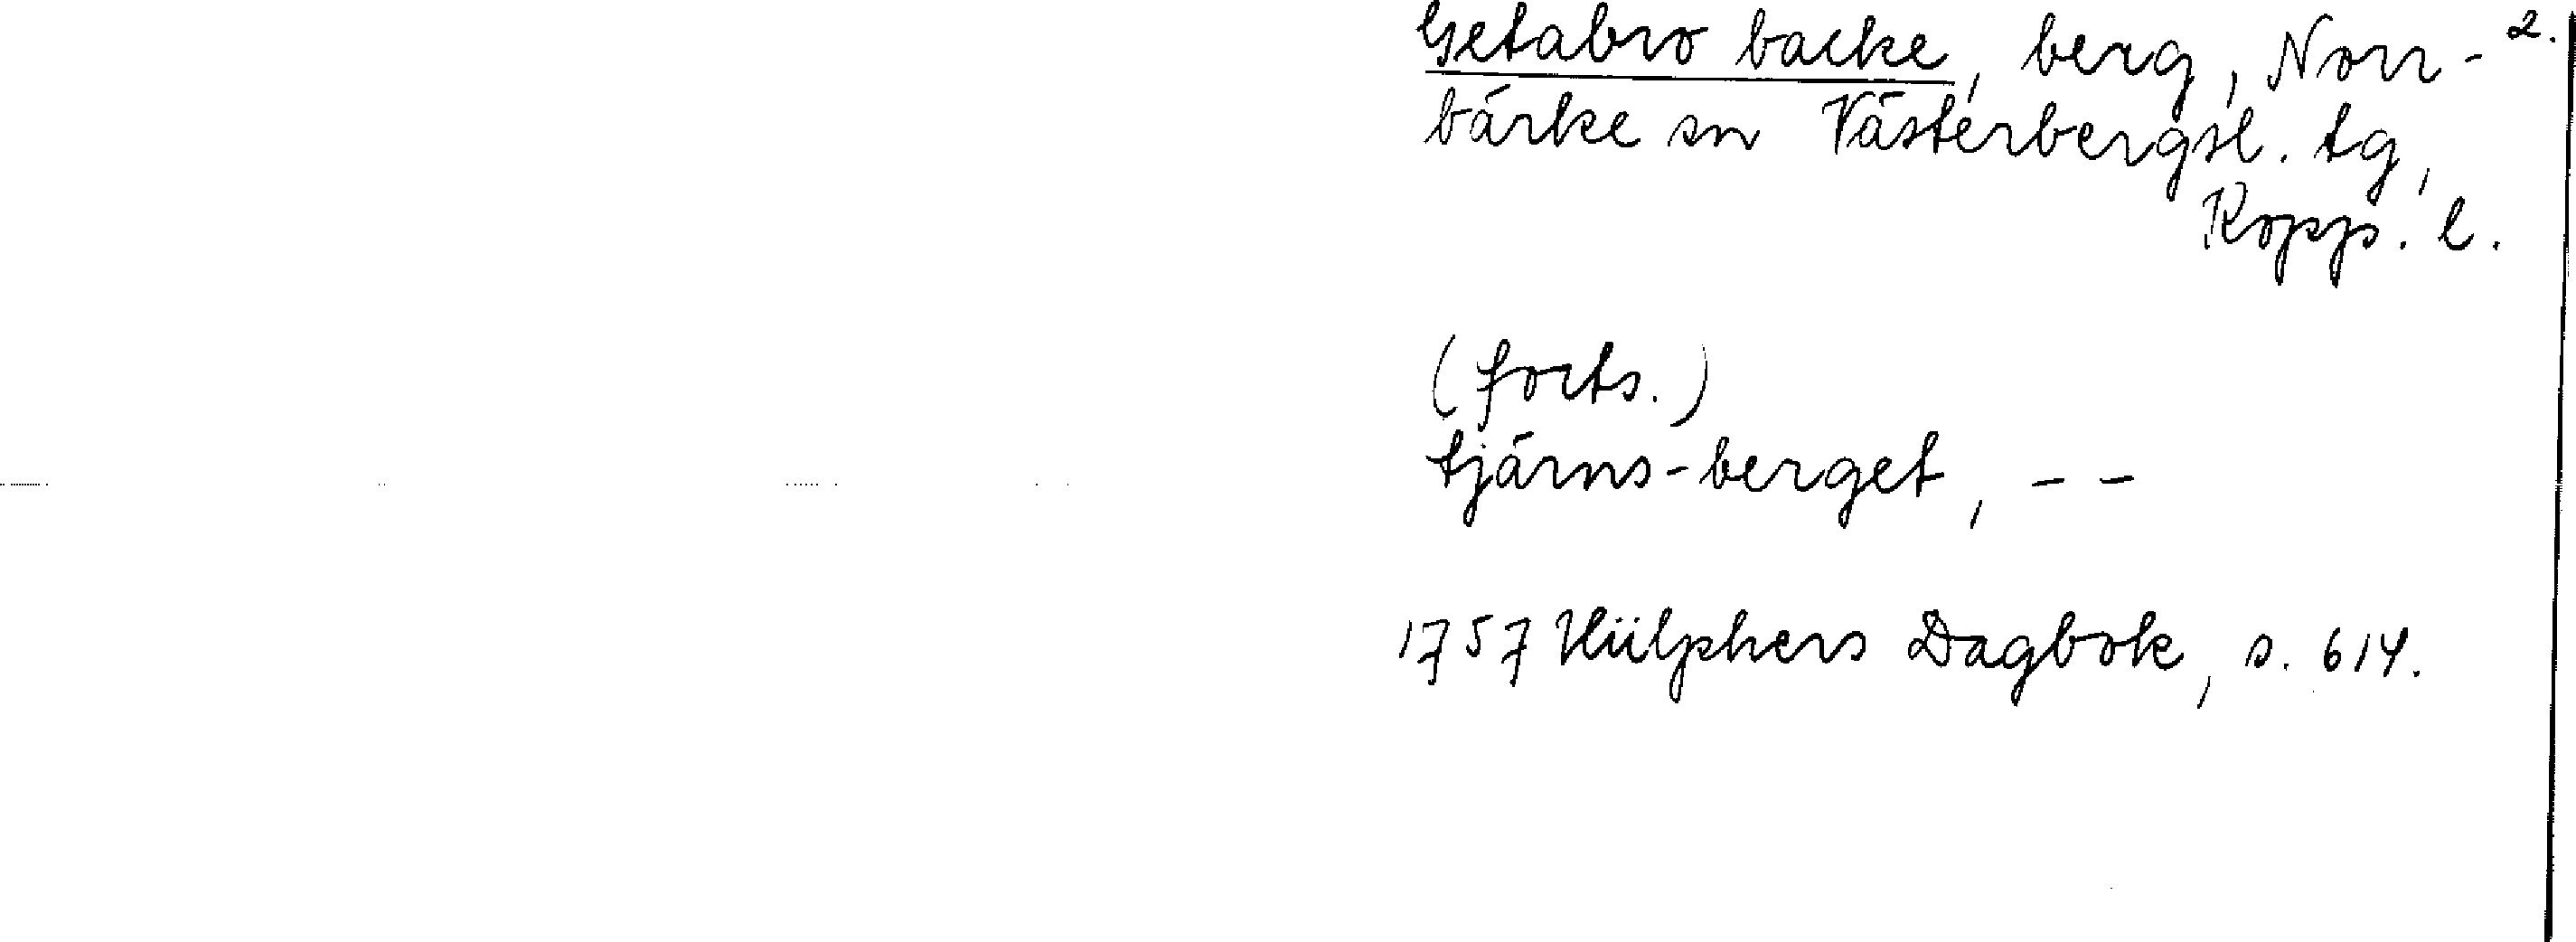 Getabro backe, berg, Norr- 2.
bärke sn Västerbergsl. tg,
Kopp. l.
(forts.)
tjärns-berget, - -
1757 Hülphers Dagbok, s. 614.